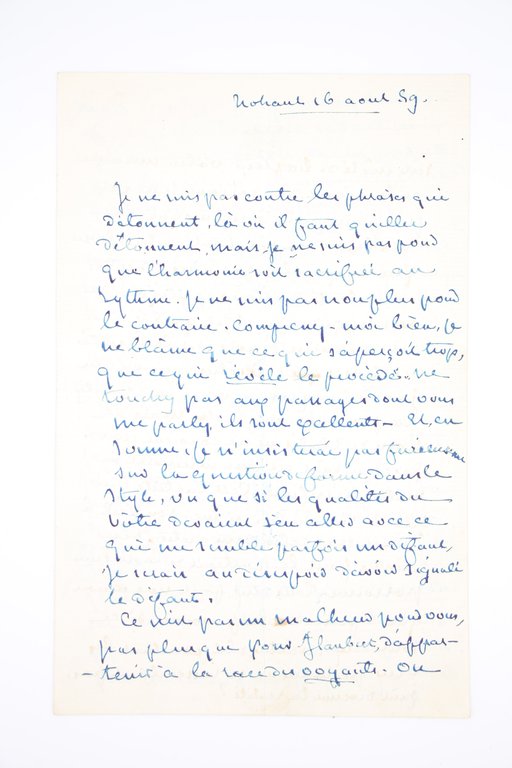 Nohant 16 aout 59.
Je ne suis pas contre les phrases qui
détonnent, là où il faut qu'elles
détonnent, mais je ne suis pas pour
que l'harmonie soit sacrifiée au
rythme. Je ne suis pas non plus pour
le contraire. Comprenez-moi bien, je
ne blâme que ce qui s'aperçoit trop,
que ce qui révèle le procédé. ne
touchez pas aux passages dont vous
me parlez, ils sont excellents - Et, en
somme, je n'insisterai pas
sur la question de forme dans le
style, vu que si les qualités du
vôtre devaient s'en aller avec ce
qui me semble parfois un défaut,
je serais au désespoir d'avoir signalé
le défaut.
Ce n'est pas un malheur pour vous,
pas plus que pour Flaubert, d'appar-
-tenir à la race des voyants. On